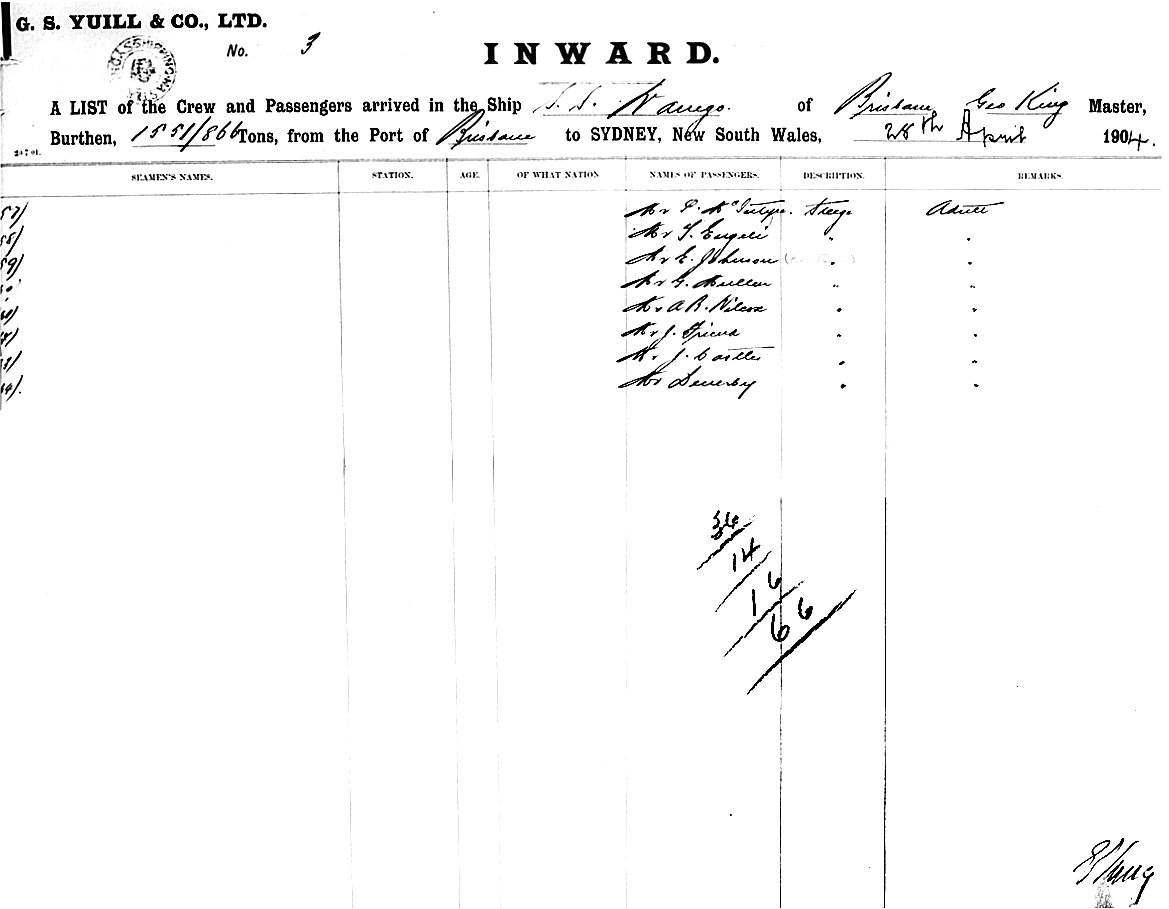 G. S. YUILL & CO., LTD.
No. 3
INWARD.
A LIST of the Crew and Passengers arrived in the Ship S. S. Warrego. of Brisbane Geo King Master,
Burthen, 1551/866 Tons, from the Port of Brisbane to SYDNEY, New South Wales, 28th April 1904.
SEAMEN'S NAMES. STATION. AGE. OF WHAT NATION NAMES OF PASSENGERS. DESCRIPTION. REMARKS.
57/ Mr P. McIntyre. Steege Adult
58/ Mr T. Engeli " "
59/ Mr E. Johnson " "
Mr G. Muller " "
Mr A B. Wilcox " "
Mr J. Friend " "
3/ Mr J. Castles " "
64/. Mr " "
36
14
16
66